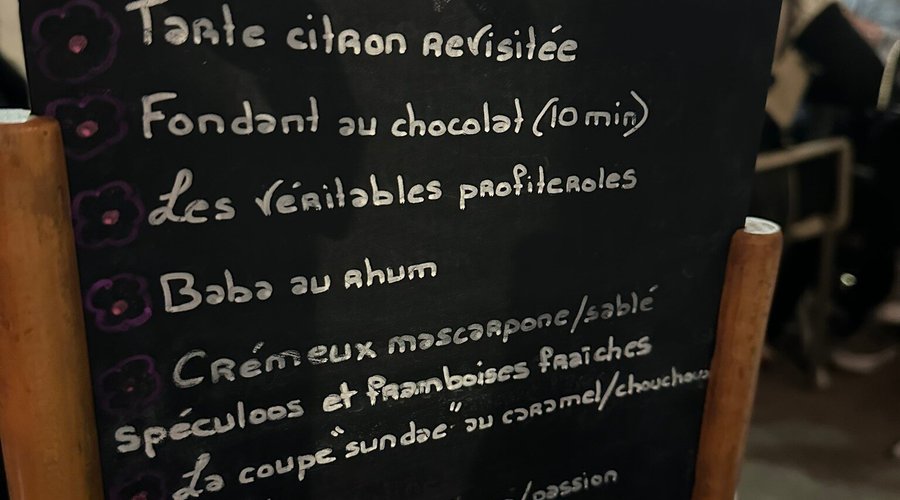 Tarte citron revisitée
Fondant au chocolat (10 min)
Les véritables profiteroles
Baba au rhum
Crémeux mascarpone/sablé
spéculoos et framboises fraîches
La coupe "sundae" au caramel/chouchous
/passion